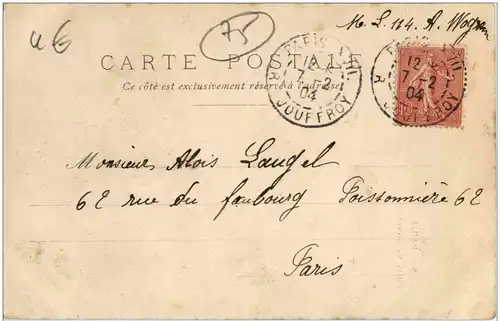 4 €
75
M. L. 114. A. Wogram
CARTE POSTALE
Ce côté est exclusivement réservé à l'adresse
PARIS XVII
12
7 -2
04
R. JOUFFROY
PARIS XVII
12
7 -2
04
R. JOUFFROY
Monsieur Alois Laugel
62 rue du faubourg Poissonnière 62
Paris